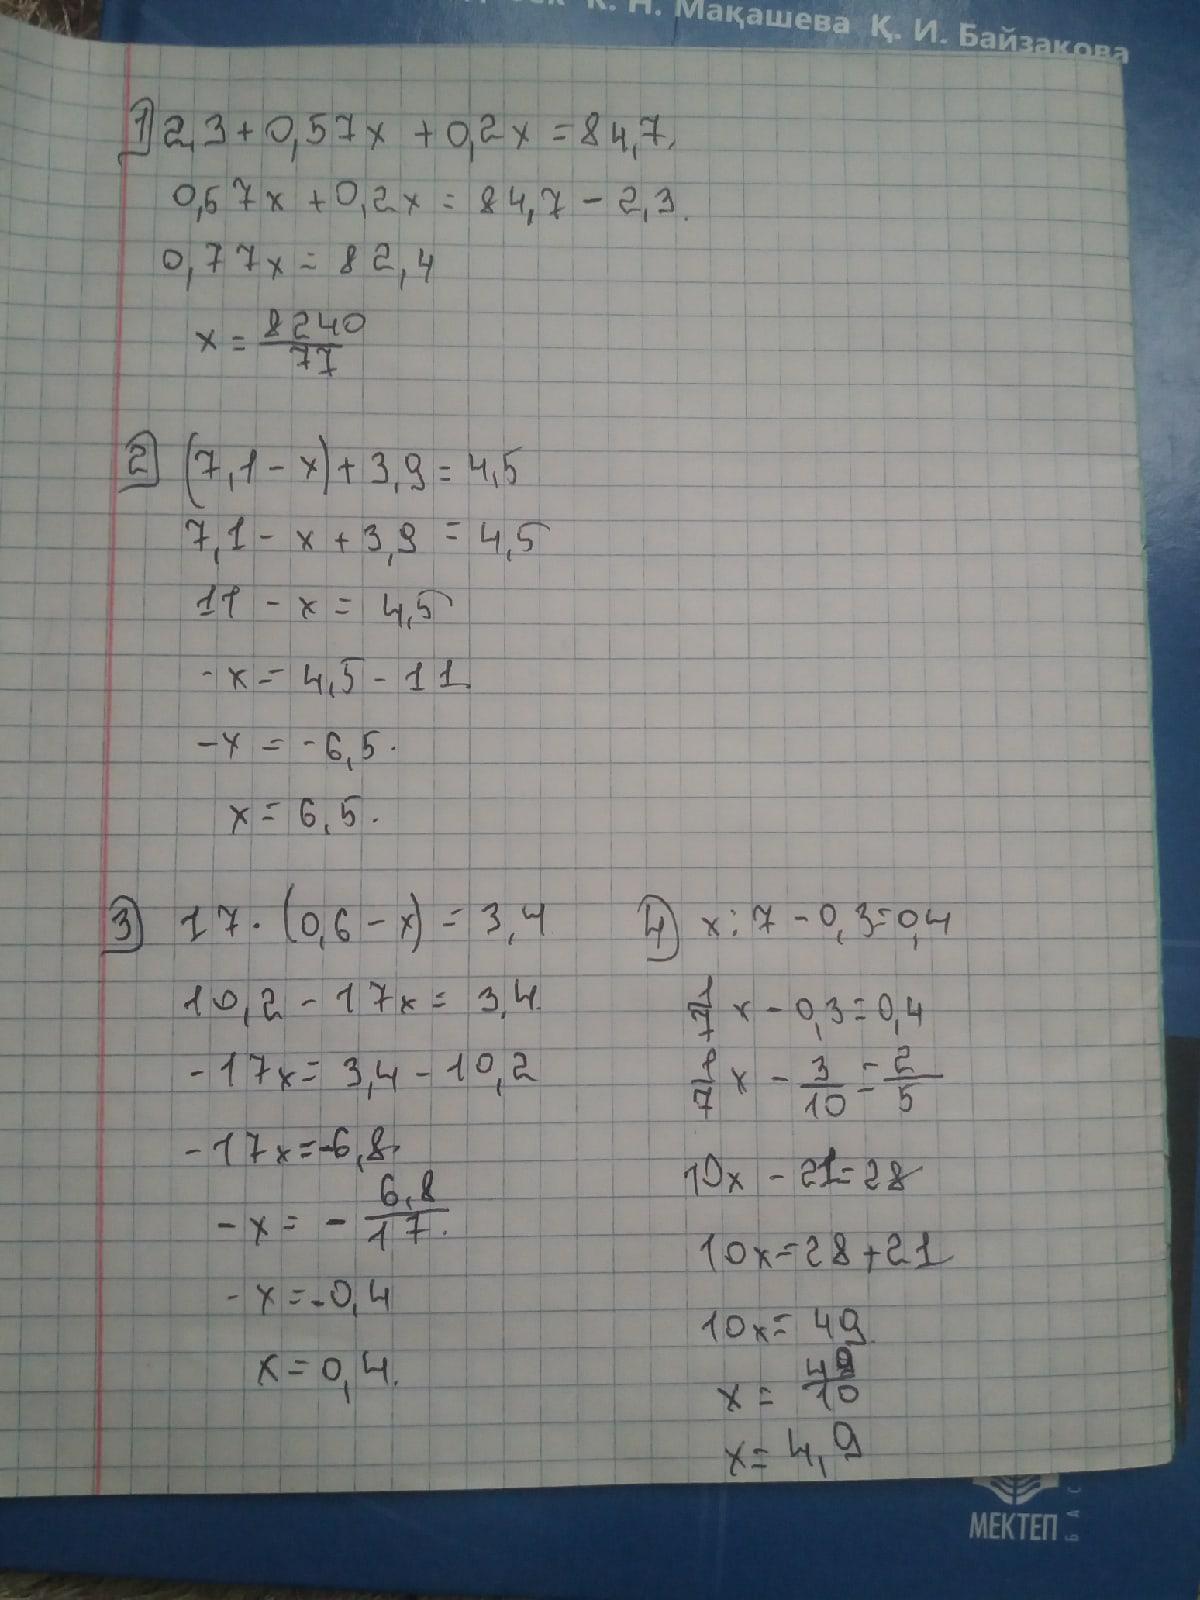 К. Н. Мақашева Қ. И. Байзакова
1) 2,3+0,57x+0,2x=84,7.
0,57x+0,2x=84,7-2,3.
0,77x=82,4
x=8240/77
2) (7,1-x)+3,9=4,5
7,1-x+3,9=4,5
11-x=4,5
-x=4,5-11
-x=-6,5.
x=6,5.
3) 17·(0,6-x)=3,4
10,2-17x=3,4
-17x=3,4-10,2
-17x=-6,8
-x=-6,8/17.
-x=-0,4
x=0,4.
4) x:7-0,3=0,4
1/7 x-0,3=0,4
1/7 x-3/10=2/5
10x-21=28
10x=28+21
10x=49
x=49/10
x=4,9
МЕКТЕП